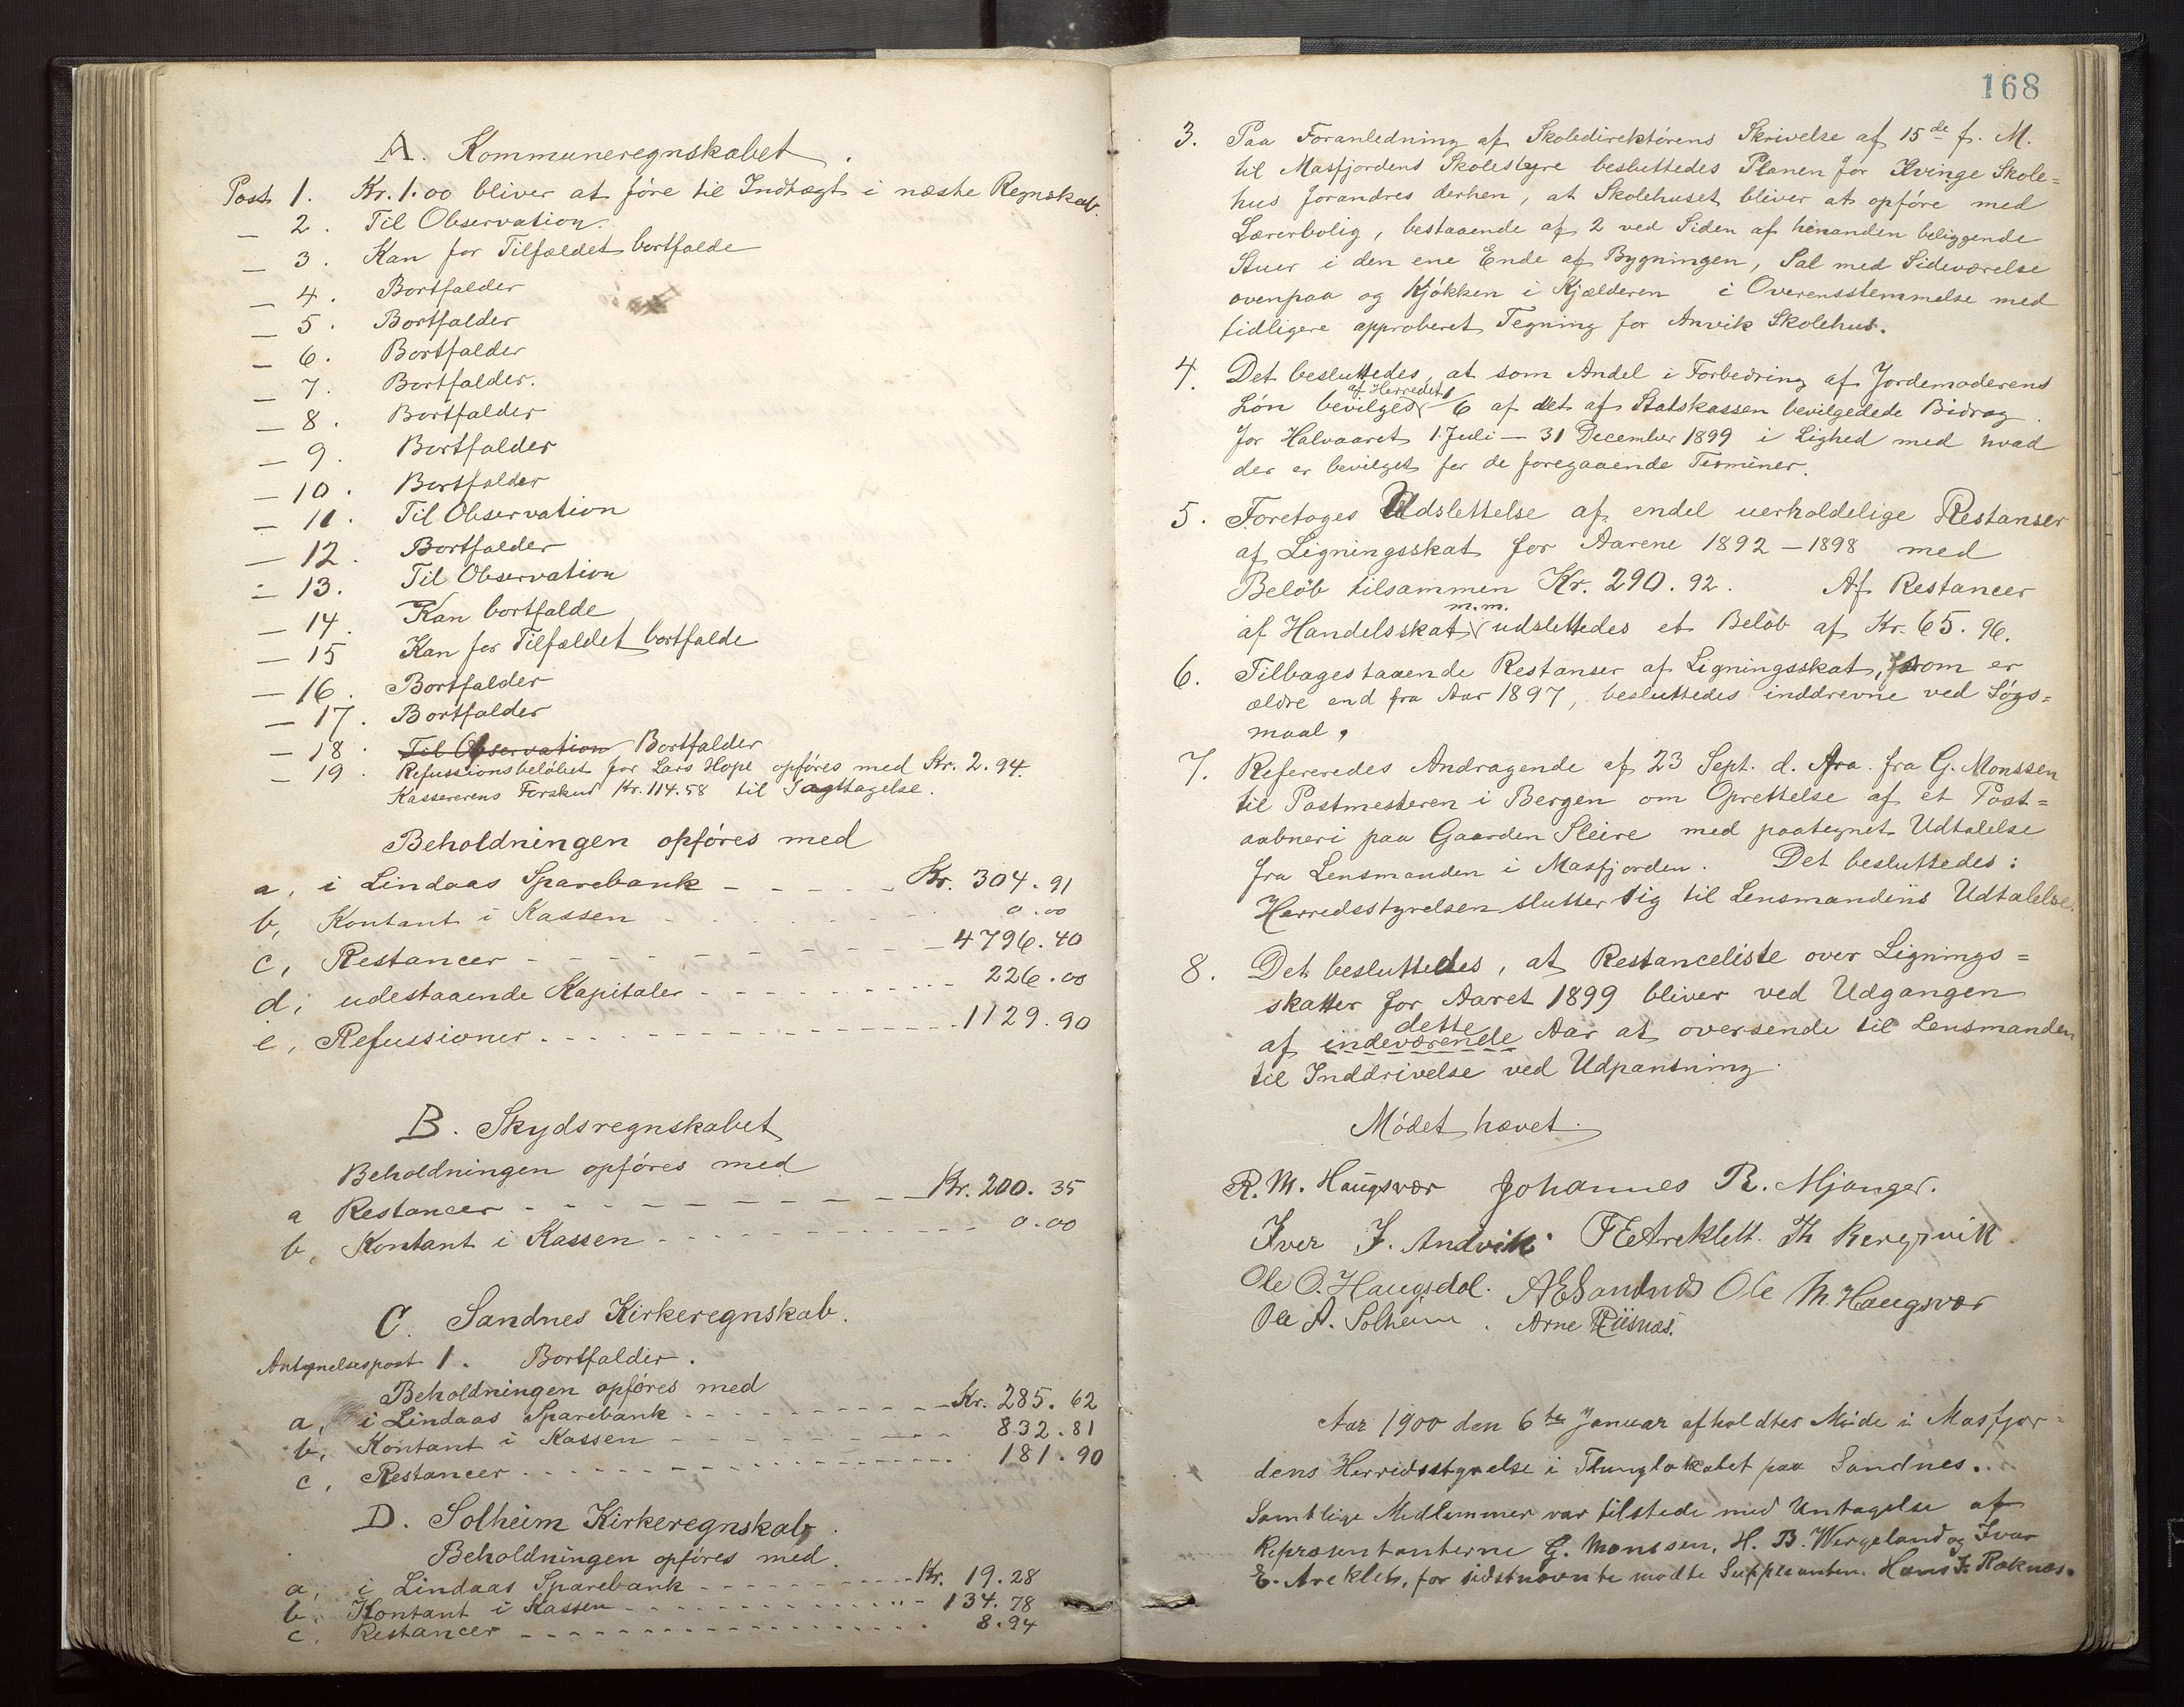 A. Kommuneregnskabet.
Post 1. Kr. 1.00 bliver at føre til Indtægt i næste Regnskab.
— 2. Til Observation.
— 3. Kan for Tilfældet bortfalde
— 4. Bortfalder
— 5. Bortfalder
— 6. Bortfalder
— 7. Bortfalder.
— 8. Bortfalder
— 9. Bortfalder
— 10. Bortfalder
— 11. Til Observation
— 12. Bortfalder
— 13. Til Observation
— 14. Kan bortfalde
— 15 Kan for Tilfældet bortfalde
— 16. Bortfalder
— 17. Bortfalder
— 18. Til Observation Bortfalder
— 19. Refussionsbeløbet for Lars Hope opføres med Kr. 2.94.
Kassererens Forskud Kr. 114.58 til Iagttagelse.
Beholdningen opføres med
a, i Lindaas Sparebank - - - - - Kr. 304.91
b, Kontant i Kassen - - - - - 0.00
c, Restancer - - - - - 4796.40
d, udestaaende Kapitaler - - - - - 226.00
e, Refussioner - - - - - 1129.90
B. Skydsregnskabet
Beholdningen opføres med
a Restancer - - - - - Kr. 200.35
b, Kontant i Kassen - - - - - 0.00
C. Sandnes Kirkeregnskab.
Antegnelsespost 1. Bortfalder.
Beholdningen opføres med
a, i Lindaas Sparebank - - - - - Kr. 285.62
b, Kontant i Kassen - - - - - 832.81
c, Restancer - - - - - 181.90
D. Solheim Kirkeregnskab.
Beholdningen opføres med.
a, i Lindaas Sparebank - - - - - Kr. 19.28
b, Kontant i Kassen - - - - - 134.78
c, Restancer - - - - - 8.94
168
3. Paa Foranledning af Skoledirektørens Skrivelse af 15de f. M.
til Masfjordens Skolestyre besluttedes Planen for Kvinge Skole=
hus forandres derhen, at Skolehuset bliver at opføre med
Lærerbolig, bestaaende af 2 ved Siden af hinanden beliggende
Stuer i den ene Ende af Bygningen, Sal med Sideværelse
ovenpaa og Kjøkken i Kjælderen i Overensstemmelse med
tidligere approberet Tegning for Anvik Skolehus.
4. Det besluttedes, at som Andel i Forbedring af Jordemoderens
af Herredet
Løn bevilges 1/6 af det af Statskassen bevilgedede Bidrag
for Halvaaret 1. Juli — 31 December 1899 i Lighed med hvad
der er bevilget for de foregaaende Terminer.
5. Foretoges Udslettelse af endel uerholdelige Restanser
af Ligningsskat for Aarene 1892 – 1898 med
Beløb tilsammen Kr. 290.92. Af Restancer
m.m.
af Handelsskat udslettedes et Beløb af Kr. 65.96.
6. Tilbagestaaende Restanser af Ligningsskat, som er
ældre end fra Aar 1897, besluttedes inddrevne ved Søgs=
maal.
7. Refereredes Andragende af 23 Sept. d. A. fra G. Monssen
til Postmesteren i Bergen om Oprettelse af et Post=
aabneri paa Gaarden Sleire med paategnet Udtalelse
fra Lensmanden i Masfjorden. Det besluttedes:
Herredsstyrelsen slutter sig til Lensmandens Udtalelse.
8. Det besluttedes, at Restanceliste over Lignings=
skatter for Aaret 1899 bliver ved Udgangen
dette
af indeværende Aar at oversende til Lensmanden
til Inddrivelse ved Udpantning.
Mødet hævet.
R. M. Haugsvær Johannes R. Mjanger.
Iver J. Andvik. F E Areklett. Th Bergsvik.
Ole O. Haugsdal. A E Sandnes Ole M. Haugsvær
Ole A. Solheim. Arne Riisnæs.
Aar 1900 den 6te Januar afholdtes Møde i Masfjor=
dens Herredsstyrelse i Thinglokalet paa Sandnes.
Samtlige Medlemmer var tilstede med Untagelse af
Repræsentanterne G. Monssen, H. B. Wergeland og Ivar
E. Areklet, for sidstnævnte mødte Suppleanten Hans I. Roknes.